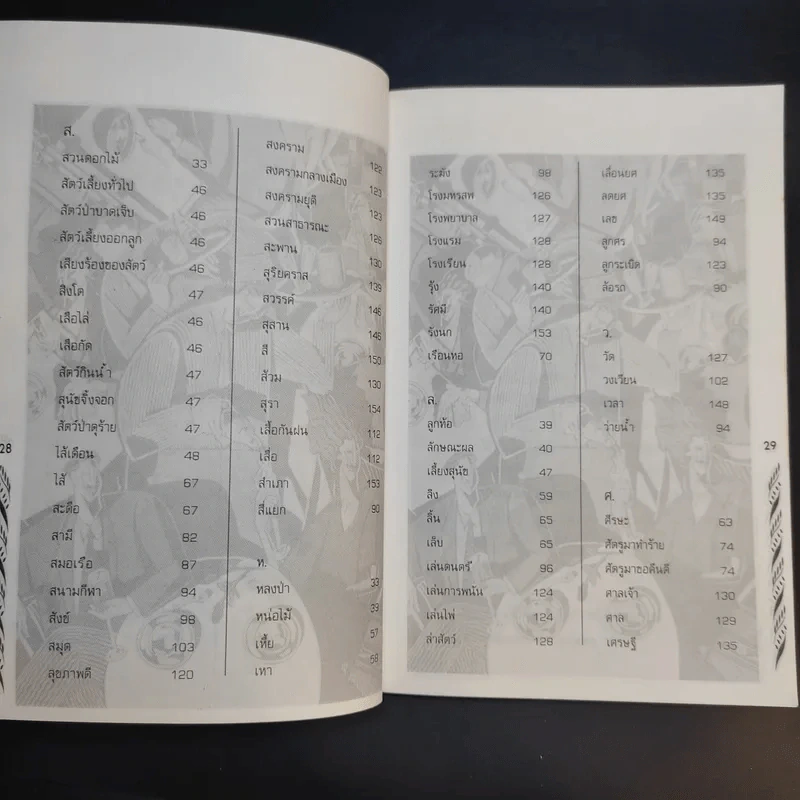 ส.
สวนดอกไม้ 33
สัตว์เลี้ยงทั่วไป 46
สัตว์ป่าบาดเจ็บ 46
สัตว์เลี้ยงออกลูก 46
เสียงร้องของสัตว์ 46
สิงโต 47
เสือไล่ 46
เสือกัด 46
สัตว์กินน้ำ 47
สุนัขจิ้งจอก 47
สัตว์ป่าดุร้าย 47
ไส้เดือน 48
ไส้ 67
สะดือ 67
สามี 82
สมอเรือ 87
สนามกีฬา 94
สังข์ 98
สมุด 103
สุขภาพดี 120
สงคราม 122
สงครามกลางเมือง 123
สงครามยุติ 123
สวนสาธารณะ 126
สะพาน 130
สุริยคราส 139
สวรรค์ 146
สุสาน 146
สี 150
ส้วม 130
สุรา 154
เสื้อกันฝน 112
เสื่อ 112
สำเภา 153
สี่แยก 90
ห.
หลงป่า 33
หน่อไม้ 39
เหี้ย 57
เหา 58
28
ระฆัง 98
โรงมหรสพ 126
โรงพยาบาล 127
โรงแรม 128
โรงเรียน 128
รุ้ง 140
รัศมี 140
รังนก 153
เรือนหอ 70
ล.
ลูกท้อ 39
ลักษณะผล 40
เลี้ยงสุนัข 47
ลิง 59
ลิ้น 65
เล็บ 65
เล่นดนตรี 96
เล่นการพนัน 124
เล่นไพ่ 124
ล่าสัตว์ 128
เลื่อนยศ 135
ลดยศ 135
เลข 149
ลูกศร 94
ลูกระเบิด 123
ล้อรถ 90
ว.
วัด 127
วงเวียน 102
เวลา 148
ว่ายน้ำ 94
ศ.
ศีรษะ 63
ศัตรูมาทำร้าย 74
ศัตรูมาขอคืนดี 74
ศาลเจ้า 130
ศาล 129
เศรษฐี 135
29